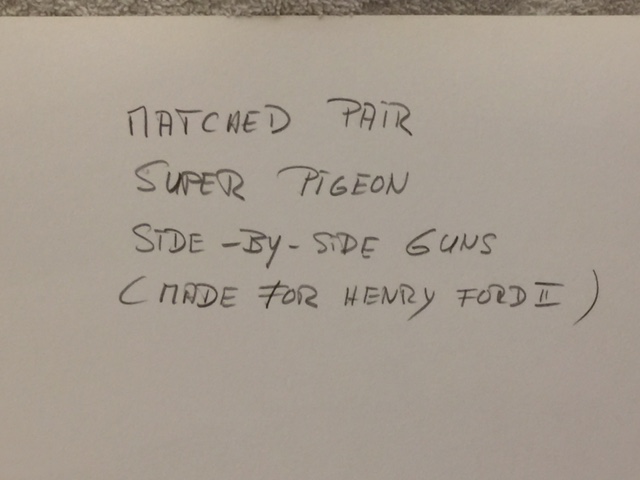 MATCHED PAIR
SUPER PIGEON
SIDE-BY-SIDE GUNS
(MADE FOR HENRY FORD II)